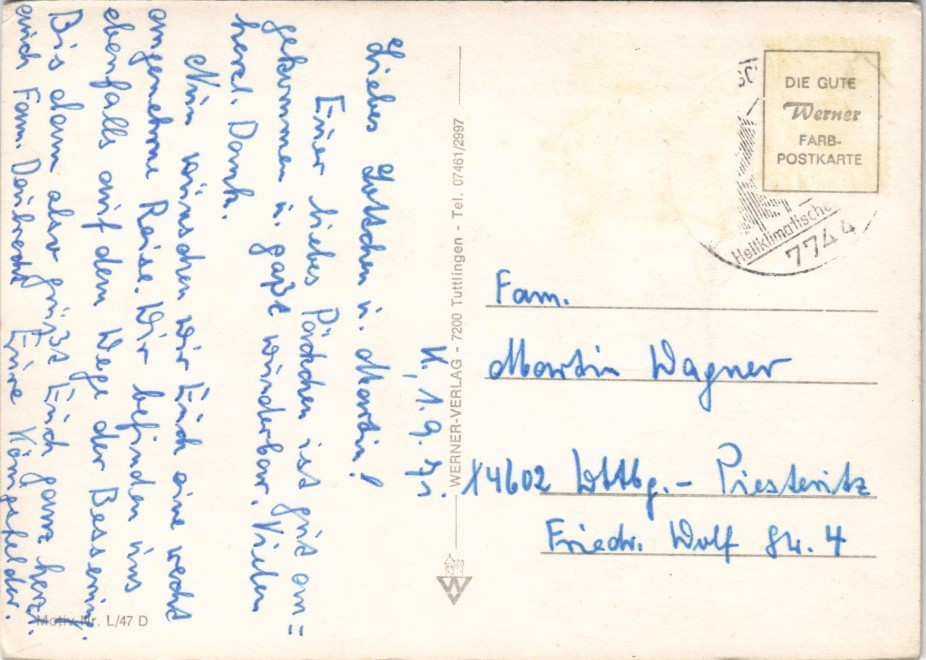 K, 1.9.71.
Liebes Lottchen u. Martin!
Euer liebes Päckchen ist gut an=
gekommen u. paßt wunderbar. Vielen
herzl. Dank.
Nun wünschen wir Euch eine recht
angenehme Reise. Wir befinden uns
ebenfalls auf dem Wege der Besserung.
Bis dann also grüßt Euch ganz herzl.
auch Fam. Eure Königsfelder.
Motiv-Nr. L/47 D
WERNER-VERLAG - 7200 Tuttlingen - Tel. 07461/2997
DIE GUTE
Werner
FARB-
POSTKARTE
Heilklimatische
7744
Fam.
Martin Wagner
X4602 Wttbg.- Piesteritz
Friedr. Wolf Str. 4